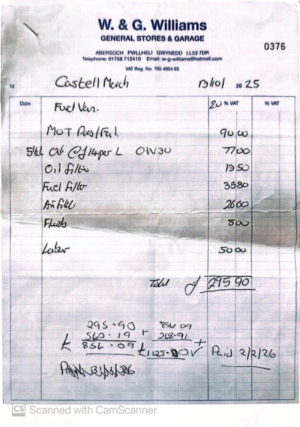 W. & G. Williams
GENERAL STORES & GARAGE
ABERSOCH PWLLHELI GWYNEDD LL53 7DR
Telephone: 01758 712418 Email: w-g-williams@hotmail.com
VAT Reg. No. 160 4954 85
0376
M Castell March 13/01/ 20 25
Date % VAT % VAT
Fuel Van.
MOT 90 00
5 OW30 7700
Oil Filter 13 50
Fuel Filter 3580
Air Filter 2600
Fluids 500
Labour 50 00
Total £ 295 90
295.90 856 09
560.19 + 268.91 +
£ 856.09 Paid 2/2/26
CS Scanned with CamScanner